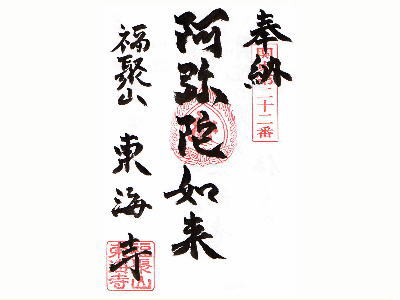 奉納
第二十二番
阿弥陀如来
福聚山 東海寺
福聚山
東海寺